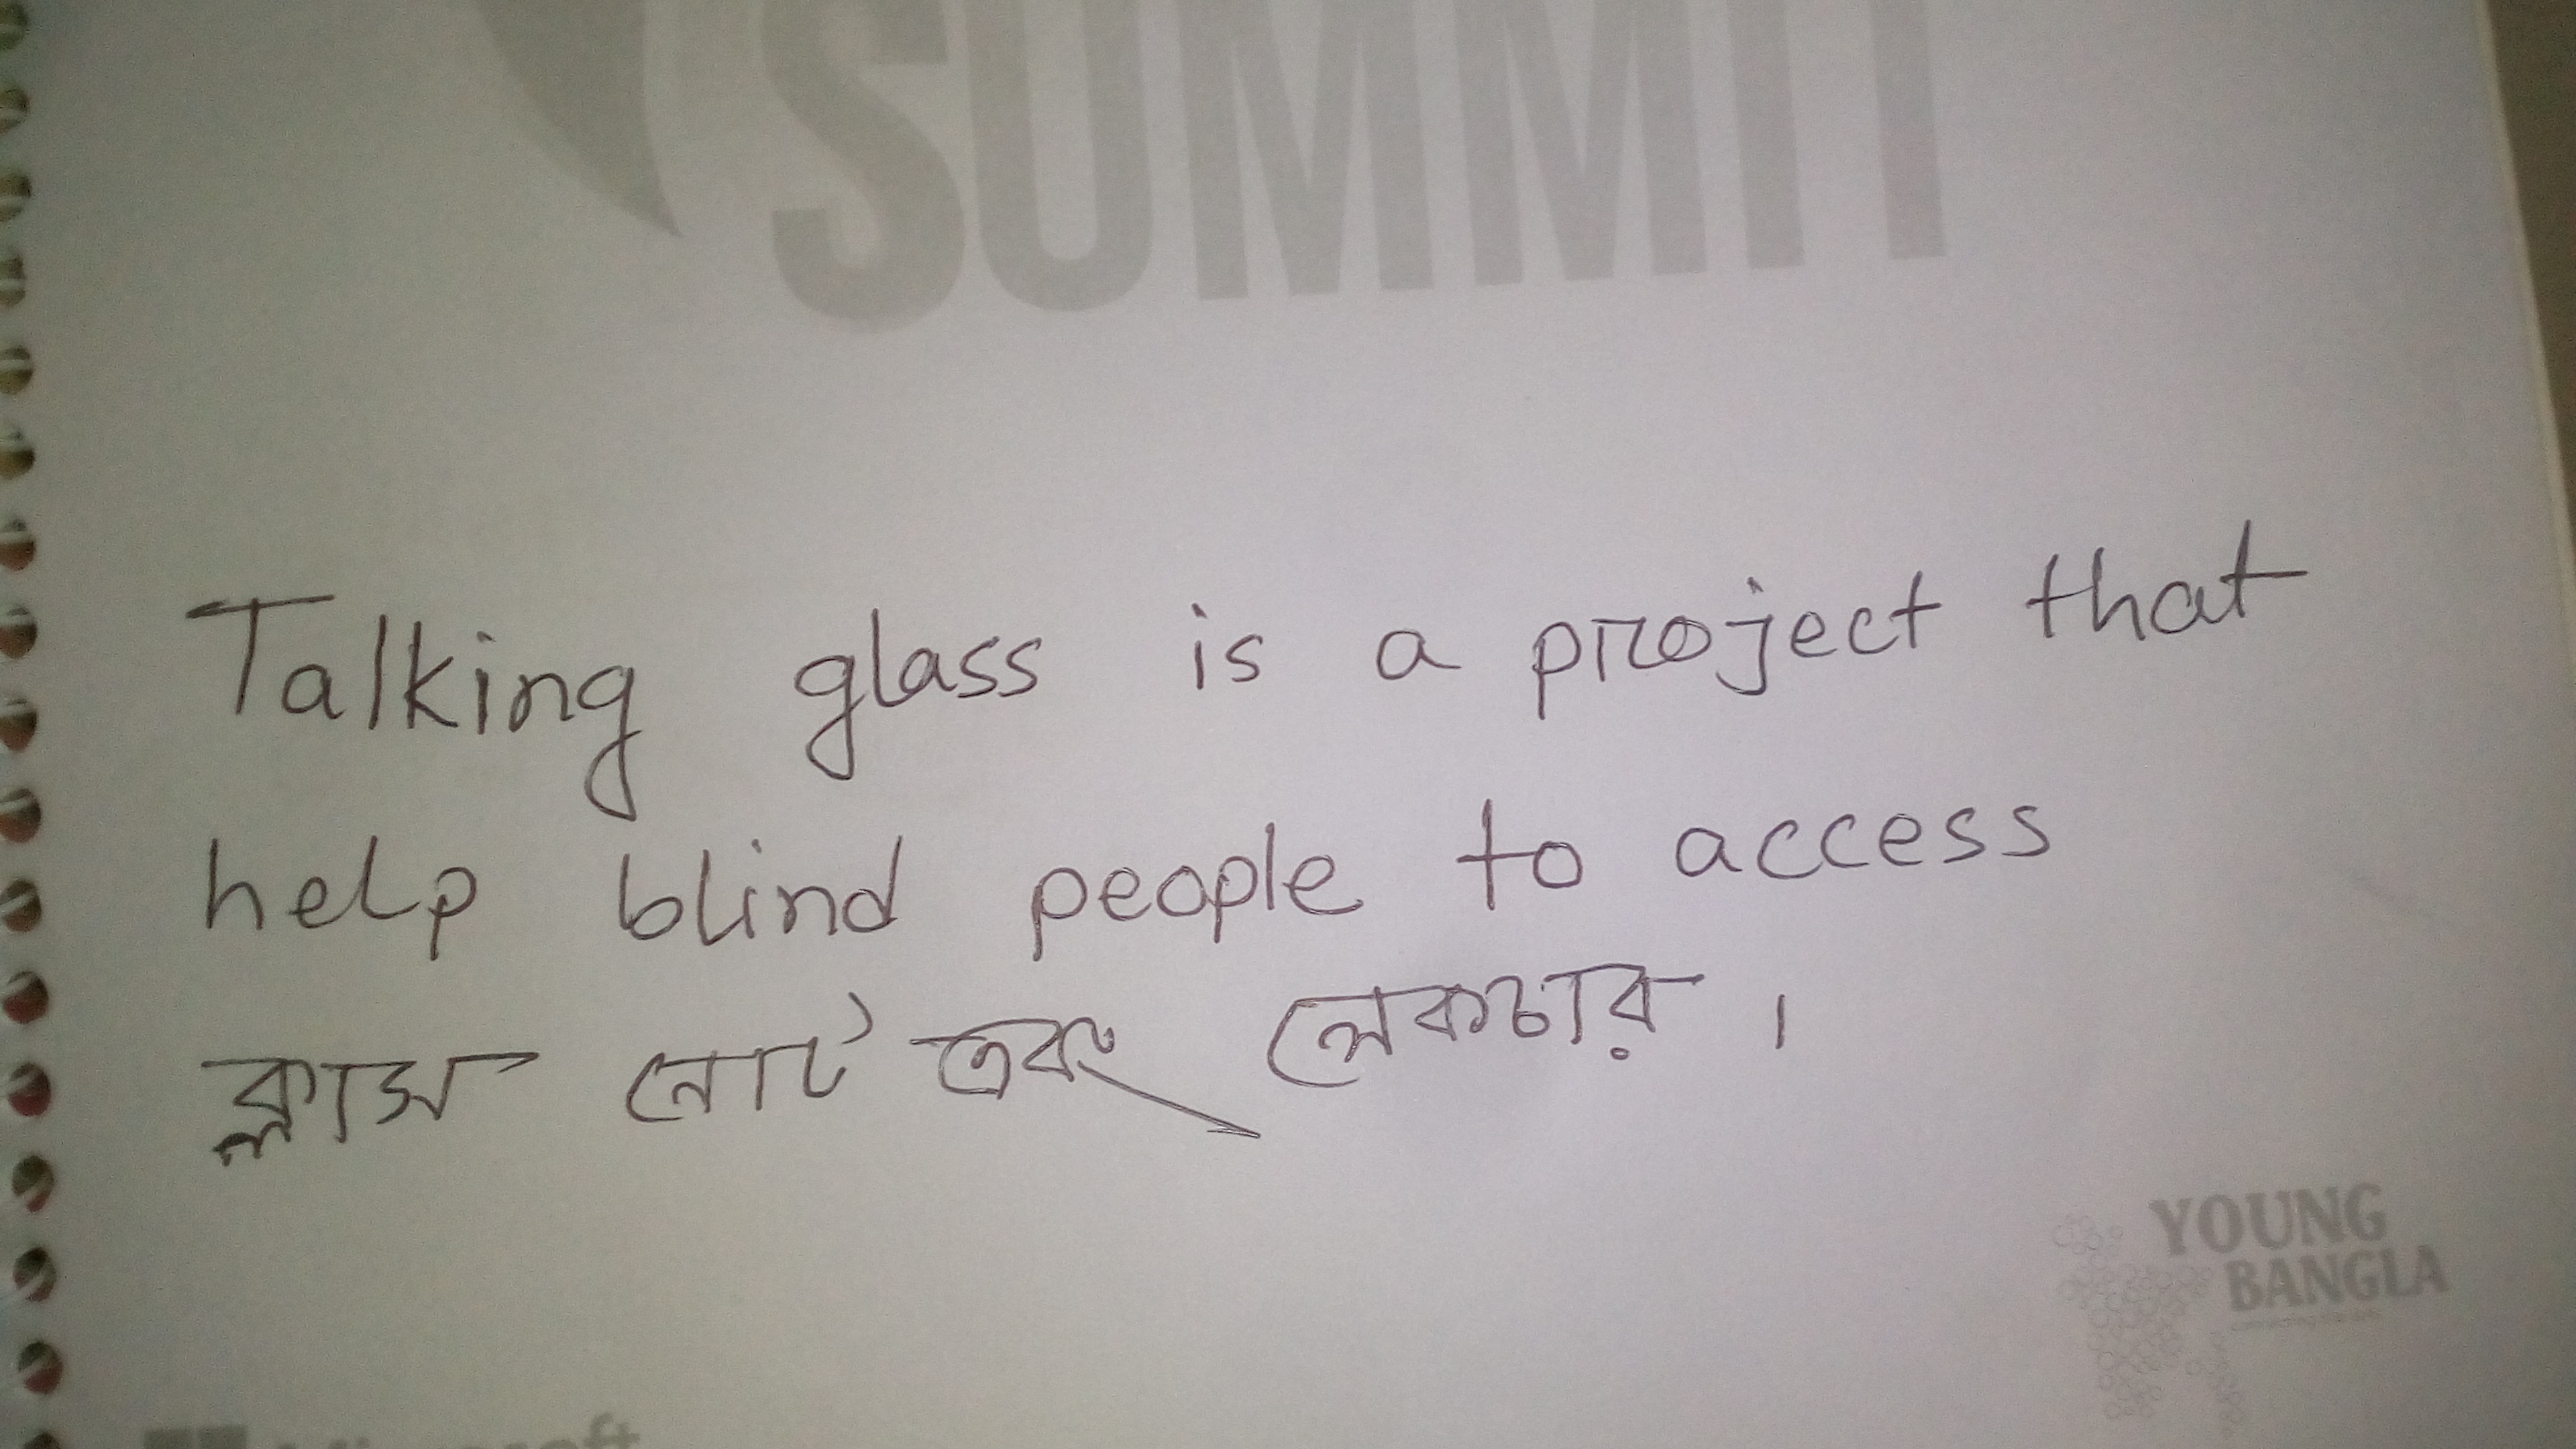 SUMMIT
Talking glass is a project that
help blind people to access
ক্লাস নোট এবং লেকচার ।
YOUNG
BANGLA